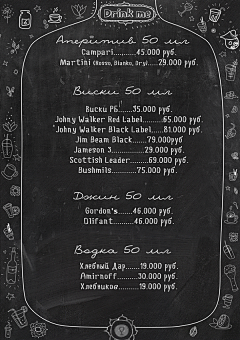 Drink me
Аперитив 50 мл
Campari..........45.000 руб.
Martini (Rosso, Bianko, Dry)....29.000 руб.
Виски 50 мл
Виски РБ......35.000 руб.
Johny Walker Red Label........65.000 руб.
Johny Walker Black Label......81.000 руб.
Jim Beam Black.......79.000руб
Jameson 3..............29.000 руб.
Scottish Leader........69.000 руб.
Bushmils...........75.000 руб.
Джин 50 мл
Gordon's........46.000 руб.
Olifant........46.000 руб.
Водка 50 мл
Хлебный Дар.......19.000 руб.
Amirnoff..........30.000 руб.
Хлебников..........19.000 руб.